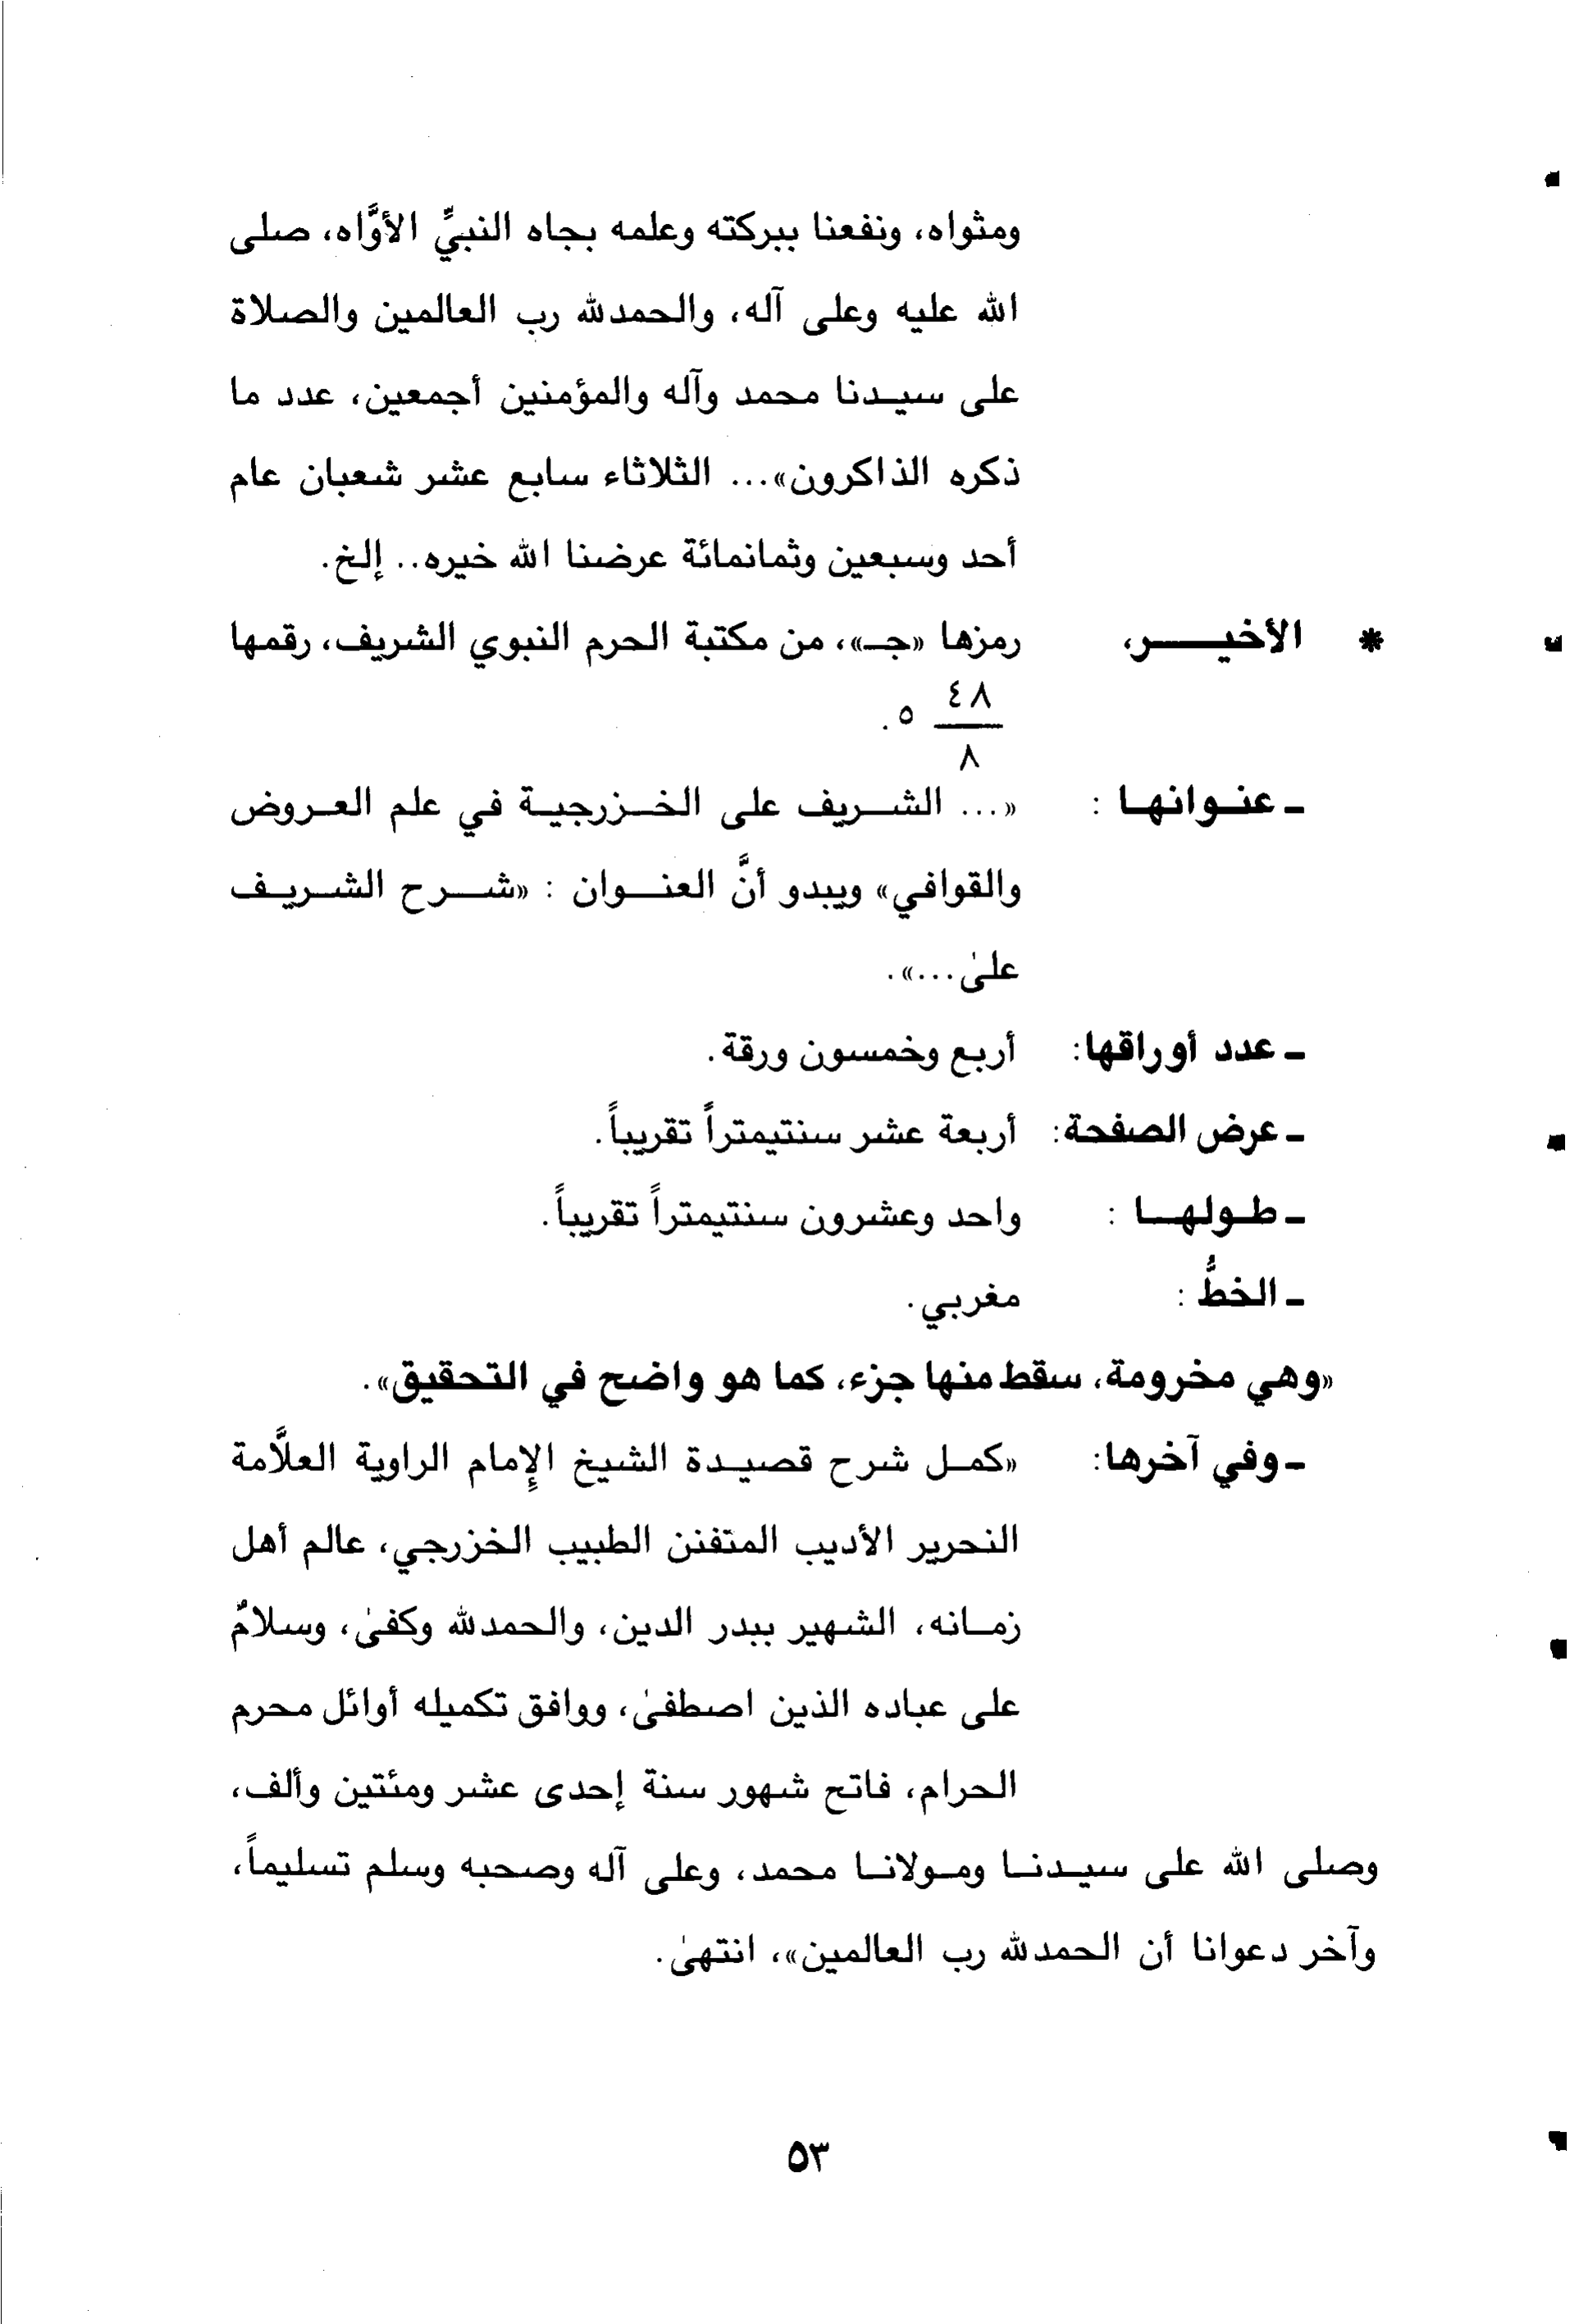 ومثواه، ونفعنا ببركته وعلمه بجاه النبيِّ الأوَّاه، صلى
الله عليه وعلى آله، والحمدلله رب العالمين والصلاة
على سيدنا محمد وآله والمؤمنين أجمعين، عدد ما
ذكره الذاكرون»... الثلاثاء سابع عشر شعبان عام
أحد وسبعين وثمانمائة عرضنا الله خيره.. إلخ.
* الأخير، رمزها «جـ»، من مكتبة الحرم النبوي الشريف، رقمها
٤٨
ـــ ٥.
٨
ـ عنوانها : «... الشريف على الخزرجية في علم العروض
والقوافي» ويبدو أنَّ العنوان : «شرح الشريف
علىٰ...».
ـ عدد أوراقها: أربع وخمسون ورقة.
ـ عرض الصفحة: أربعة عشر سنتيمتراً تقريباً.
ـ طولها : واحد وعشرون سنتيمتراً تقريباً.
ـ الخطُّ : مغربي.
«وهي مخرومة، سقط منها جزء، كما هو واضح في التحقيق».
ـ وفي آخرها: «كمل شرح قصيدة الشيخ الإِمام الراوية العلاَّمة
النحرير الأديب المتفنن الطبيب الخزرجي، عالم أهل
زمانه، الشهير ببدر الدين، والحمدلله وكفىٰ، وسلامٌ
على عباده الذين اصطفىٰ، ووافق تكميله أوائل محرم
الحرام، فاتح شهور سنة إحدى عشر ومئتين وألف،
وصلى الله على سيدنا ومولانا محمد، وعلى آله وصحبه وسلم تسليماً،
وآخر دعوانا أن الحمدلله رب العالمين»، انتهىٰ.
٥٣